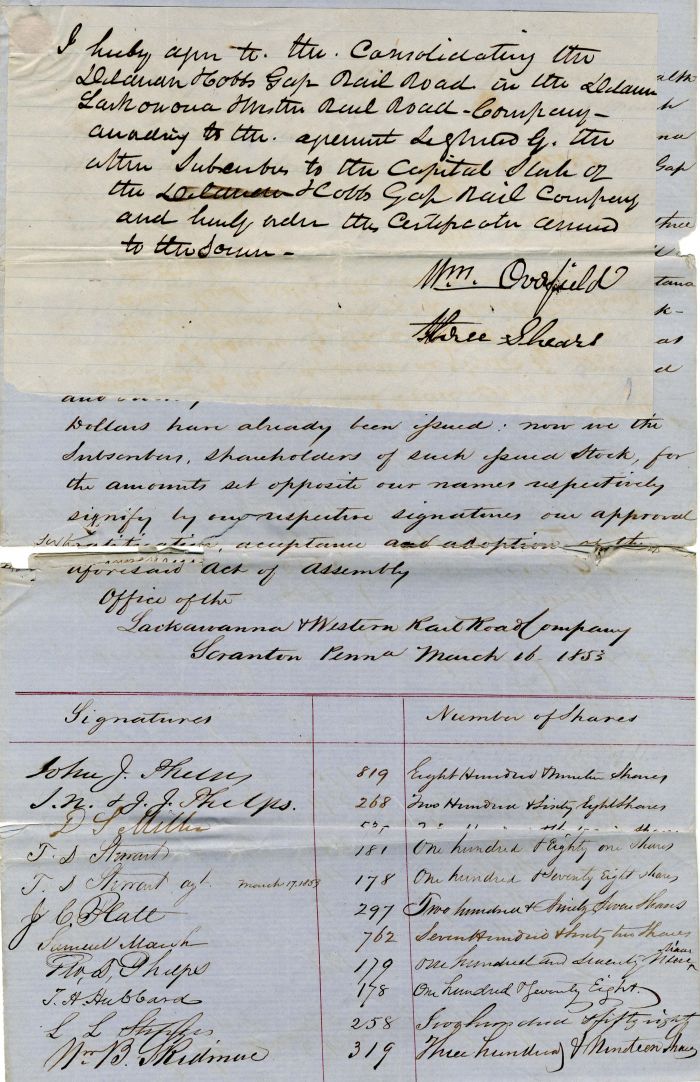 I heuby agree to the Consolidating the
Delawar & Cobbs Gap Rail Road in the Delawar
Lackawona & Wester Rail Road Company
according to the agreement Signed by the
other Subscribers to the Capital Stock of
the Delawar & Cobbs Gap Rail Company
and heuby order the Certificate
to the Same -
Wm. Overfield
three Shears
Gap
three
k-
as
Dollars have already been issued: now we the
Subscribers, shareholders of such issued Stock, for
the amounts set opposite our names respectively
signify by our respective signatures our approval
ratification, acceptance and adoption of the
aforesaid Act of Assembly
Office of the
Lackawanna & Western Rail Road Company
Scranton Penna March 16 1853
Signatures Number of Shares
John J. Phelps 819 Eight Hundred & Nineteen Shares
I. N. & J. J. Phelps. 268 Two Hundred & Sixty Eight Shares
D S Miller
T. D Stewart 181 One hundred & Eighty one Shares
T. D Stewart agt. March 17, 1853 178 One hundred & Seventy Eight shares
J C Platt 297 Two hundred & Ninety Seven Shares
Samuel Marsh 762 Seven Hundred & Sixty two Shares
Geo. D. Phelps 179 One hundred and seventy Nine Shares
T. H. Hubbard 178 One hundred & Seventy Eight
L L 258 Two hundred & fifty eight
Wm B. Skidmore 319 Three hundred & Nineteen Shares